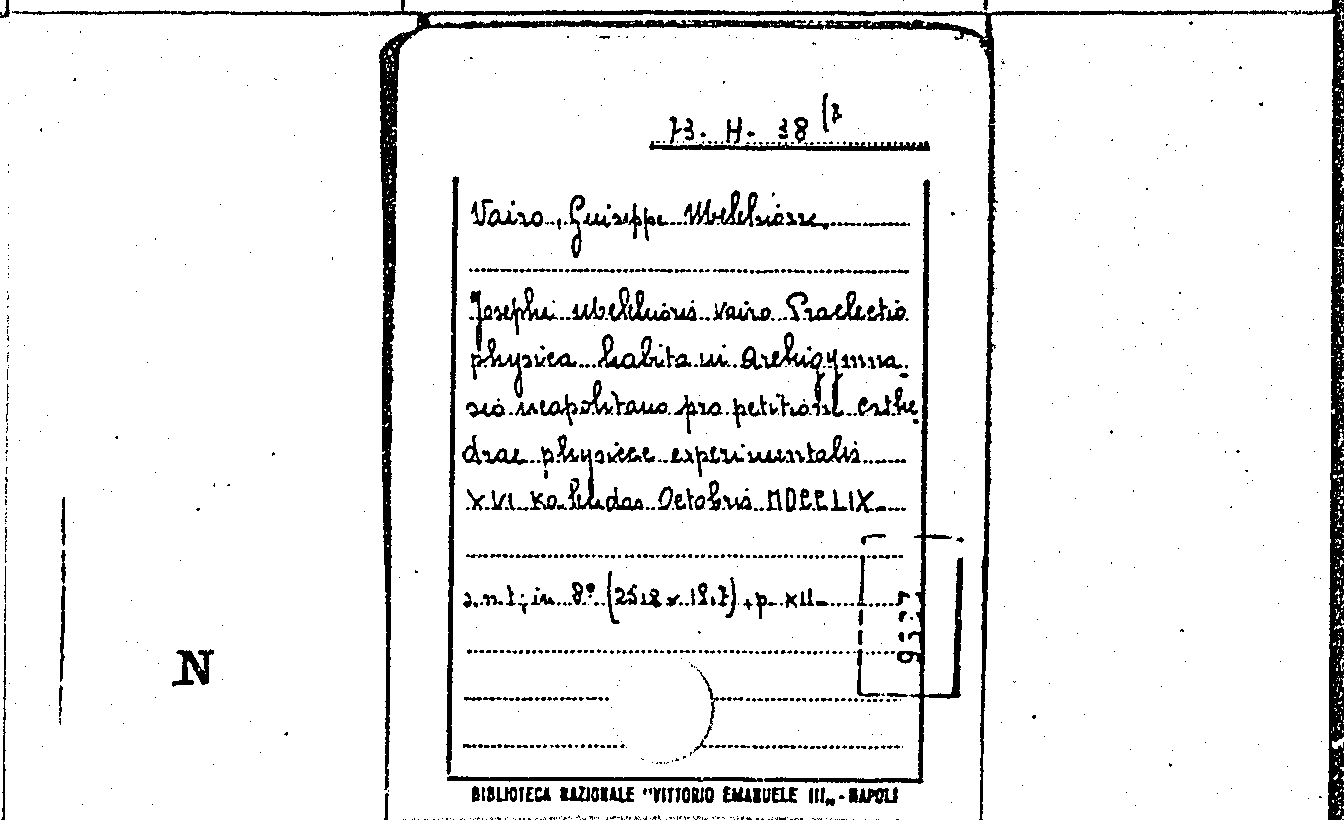 73. H. 38 (7
Vairo, Giuseppe Melchiorre
Josephi Melchioris Vairo Praelectio
physica habita in Archigymna-
sio neapolitano pro petitione cathe-
drae physicae experimentalis
XVI Kalendas Octobris MDCCLIX
s.n.t; in 8° (25,2 x 18,7), p. XII
9537
N
BIBLIOTECA NAZIONALE "VITTORIO EMANUELE III„ - NAPOLI